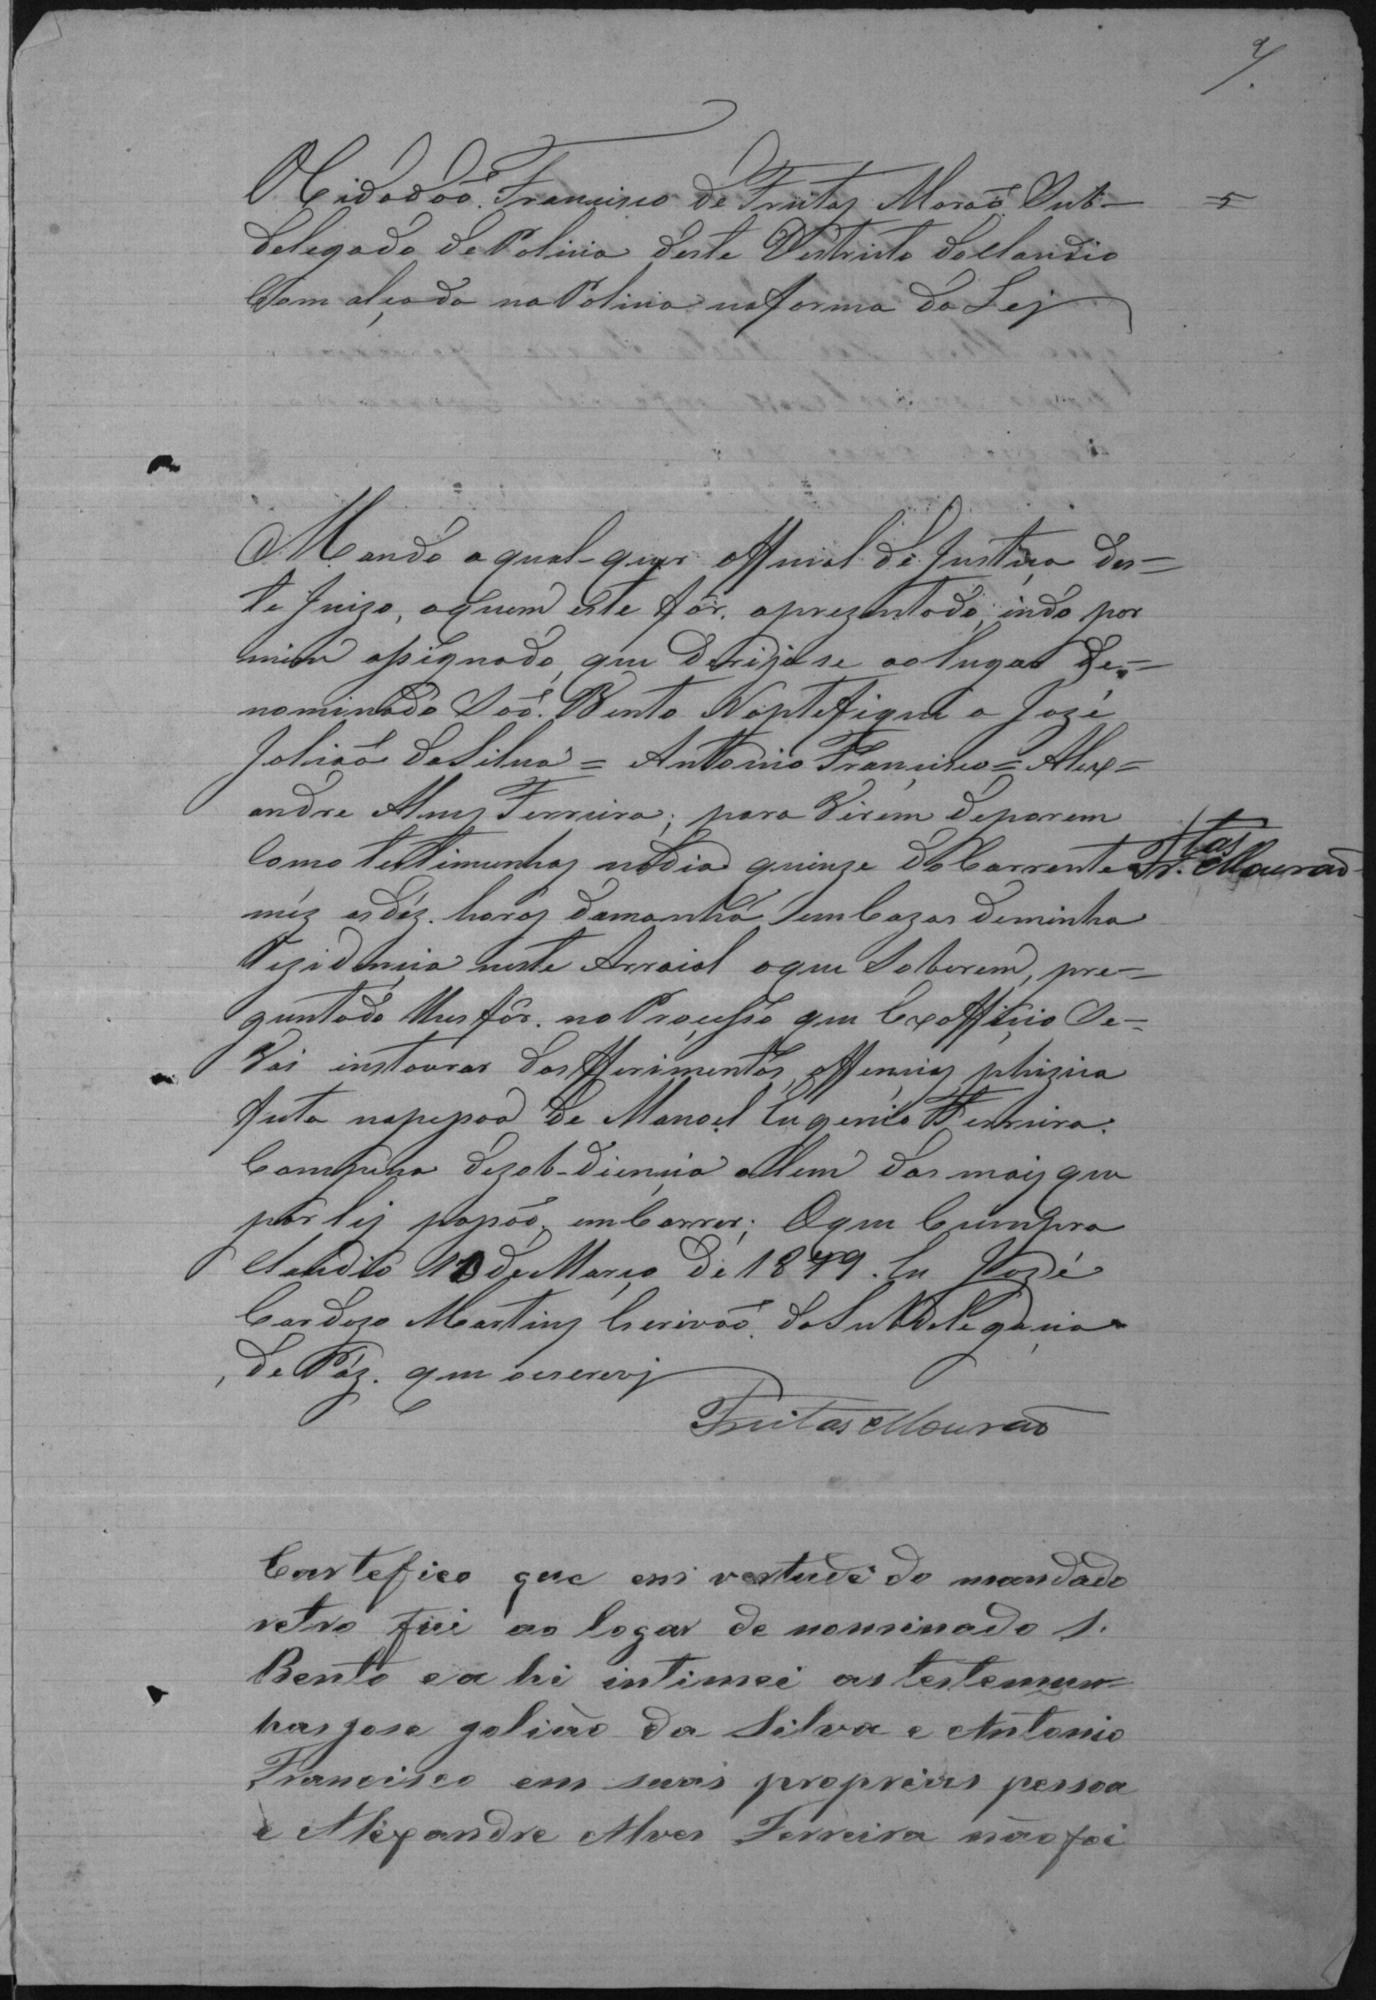 9/.
O Cidadaõ. Francisco de Freitas Moraõ Sub- =5
delegado de Policia deste Destricto do Claudio
Com alçada na Policia na forma da Lej
Mando a qual-quer official de Justiça des=
te Juizo, aquem este fôr. aprezentado, indo por
mim assignado, que Derijase ao lugar de=
nominado Saõ. Bento Noptefique a Jozé
Joliaõ da Silva = Antonio Francisco = Alex=
andre Alves Ferreira; para Virem deporem
Como testimunhas nodia quinze do Corrente Fr.tas Mourão
mêz as déz. horas damanhã em Cazas deminha
Rezidencia neste Arraial oque Soberem, pre-
guntado lhes fôr. no Processo que Exofficio Se-
Vai instaurar dos fferimentos, offencias phizica
feita napessoa de Manoel Eugenio Ferreira.
Compena dezob-diencia allem das mais que
por lej possaõ, emCorrer; Oque Cumpra
Claudio 10 de Março de 1879. Eu Jozé
Cardozo Martins Escrivaõ. da Subdelegacia
de Páz. que oescrevj
Freitas Mourão
Certefico que em vertude do mandado
retro fui ao logar de nominado S.
Bento e a hi intimei as testemun=
has jose joliào da Silva e Antonio
Francisco em suas proprias pessoa
e Alexandre Alves Ferreira não foi